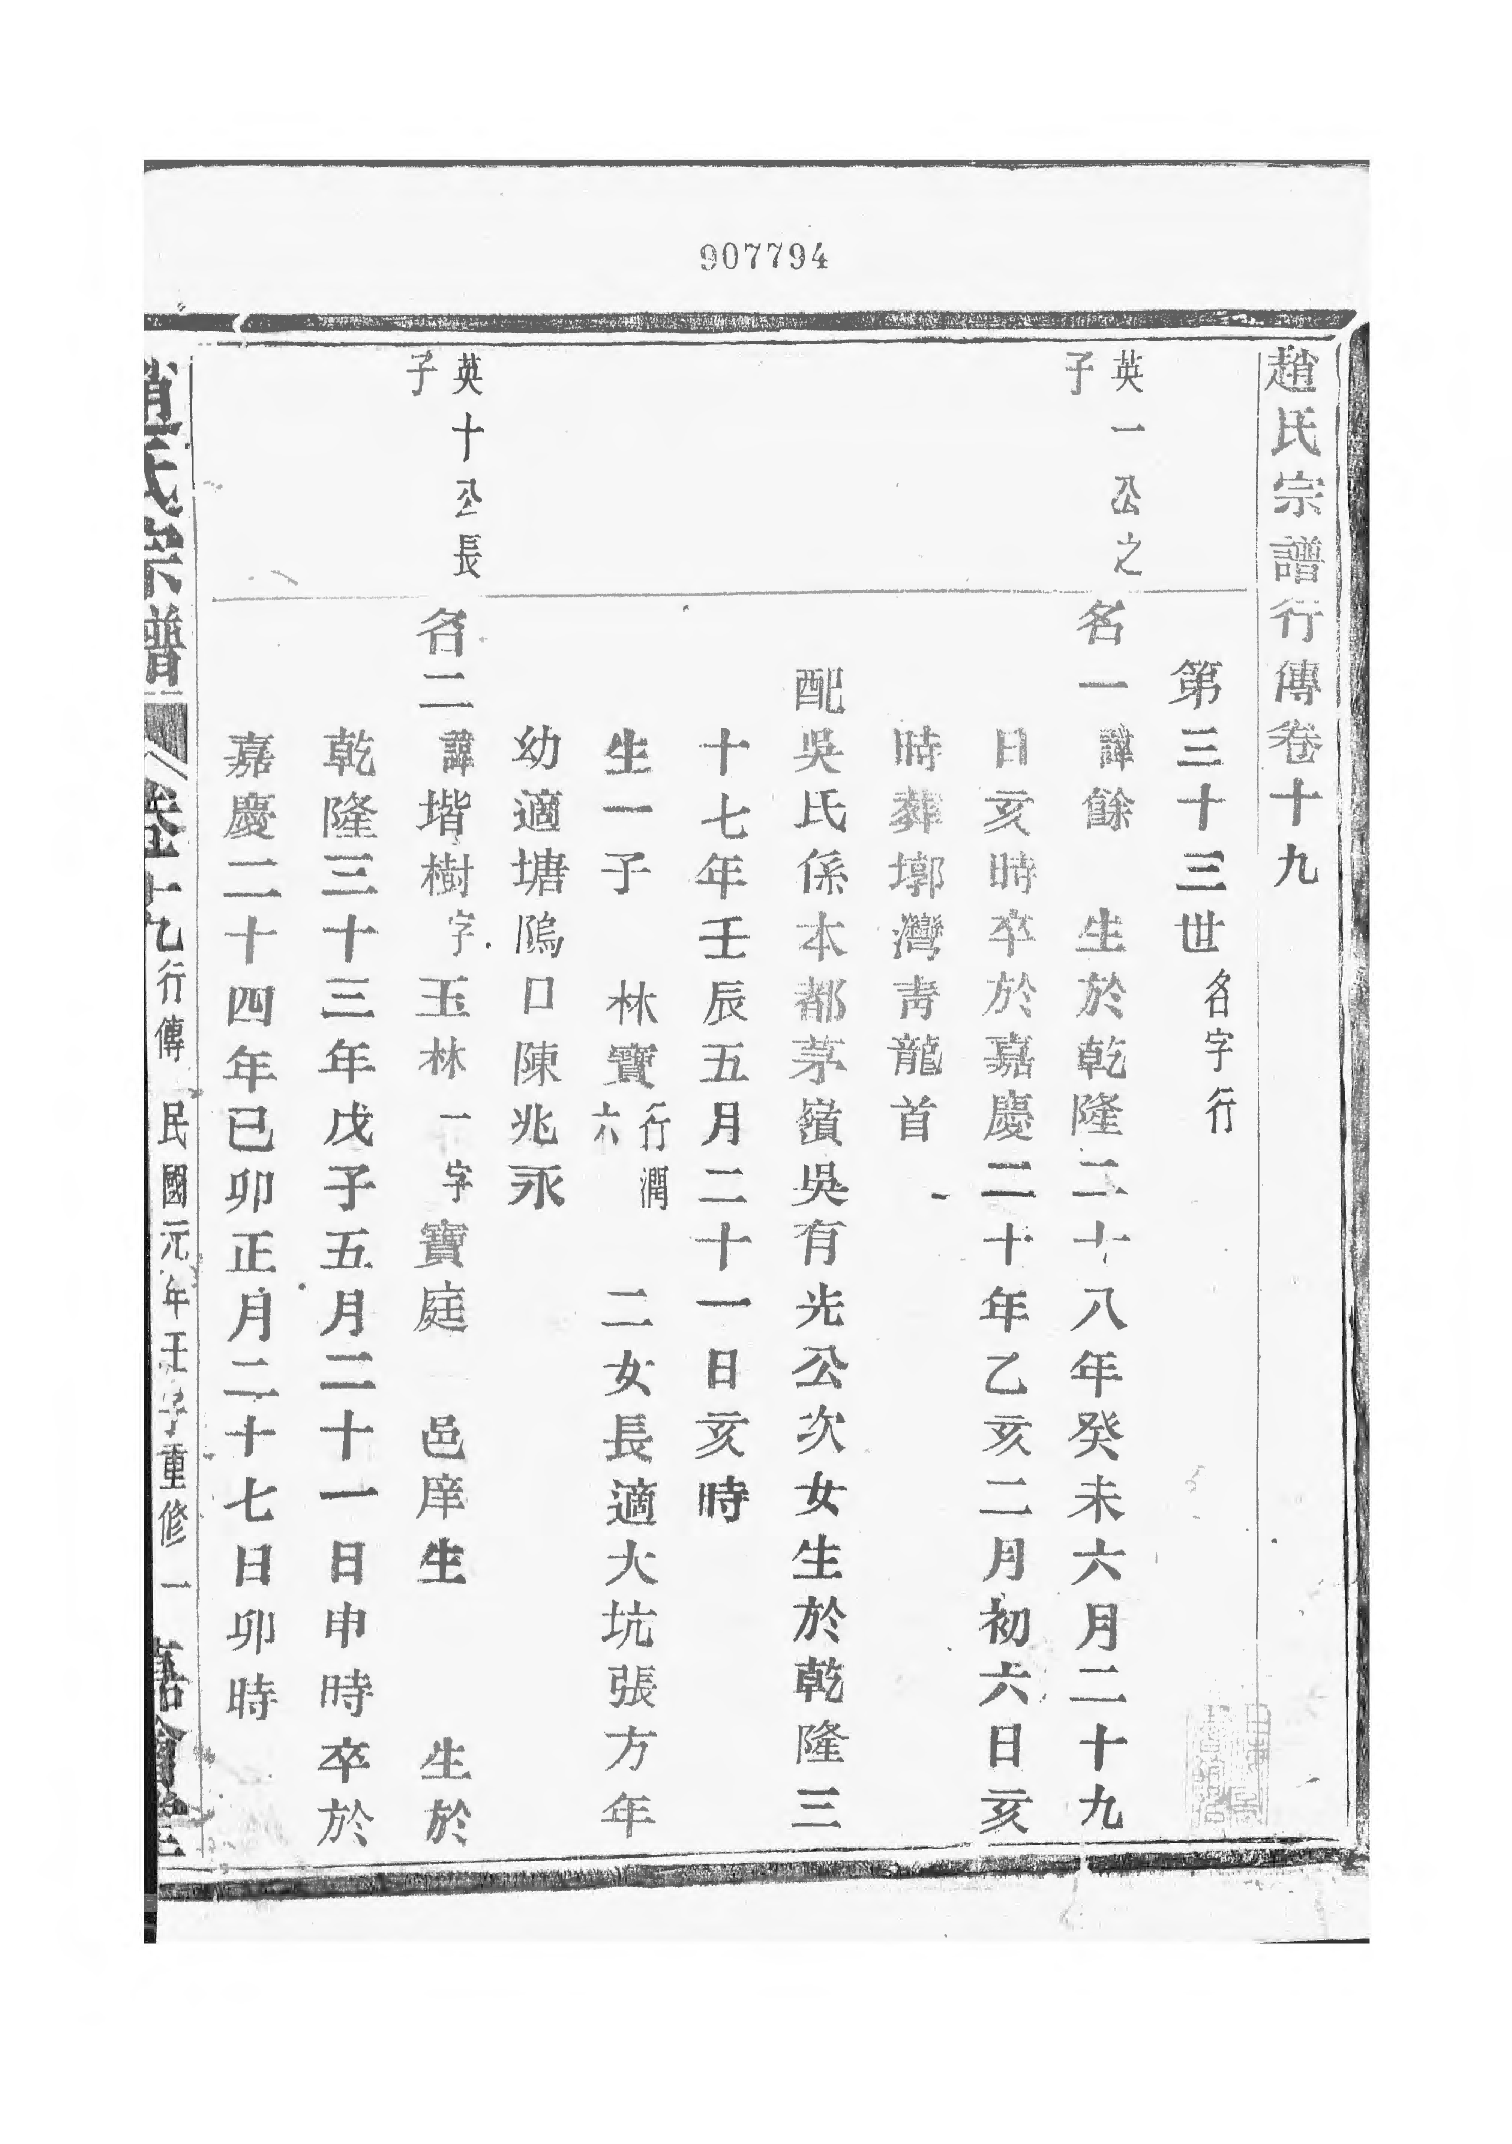 907794
趙氏宗譜行傳卷十九
第三十三世名字行
英一公之
子
名一諱餘 生於乾隆二十八年癸未六月二十九
日亥時卒於嘉慶二十年乙亥二月初六日亥
時葬墎灣青龍首
配吳氏係本都茅嶺吳有光公次女生於乾隆三
十七年壬辰五月二十一日亥時
生一子 林寶行潤六 二女長適大坑張方年
幼適塘隖口陳兆永
英十公長
子
名二諱堦樹字玉林一字寶庭 邑庠生 生於
乾隆三十三年戊子五月二十一日申時卒於
嘉慶二十四年已卯正月二十七日卯時
趙氏宗譜 卷十九 行傳 民國元年壬子重修 一 嘉會堂